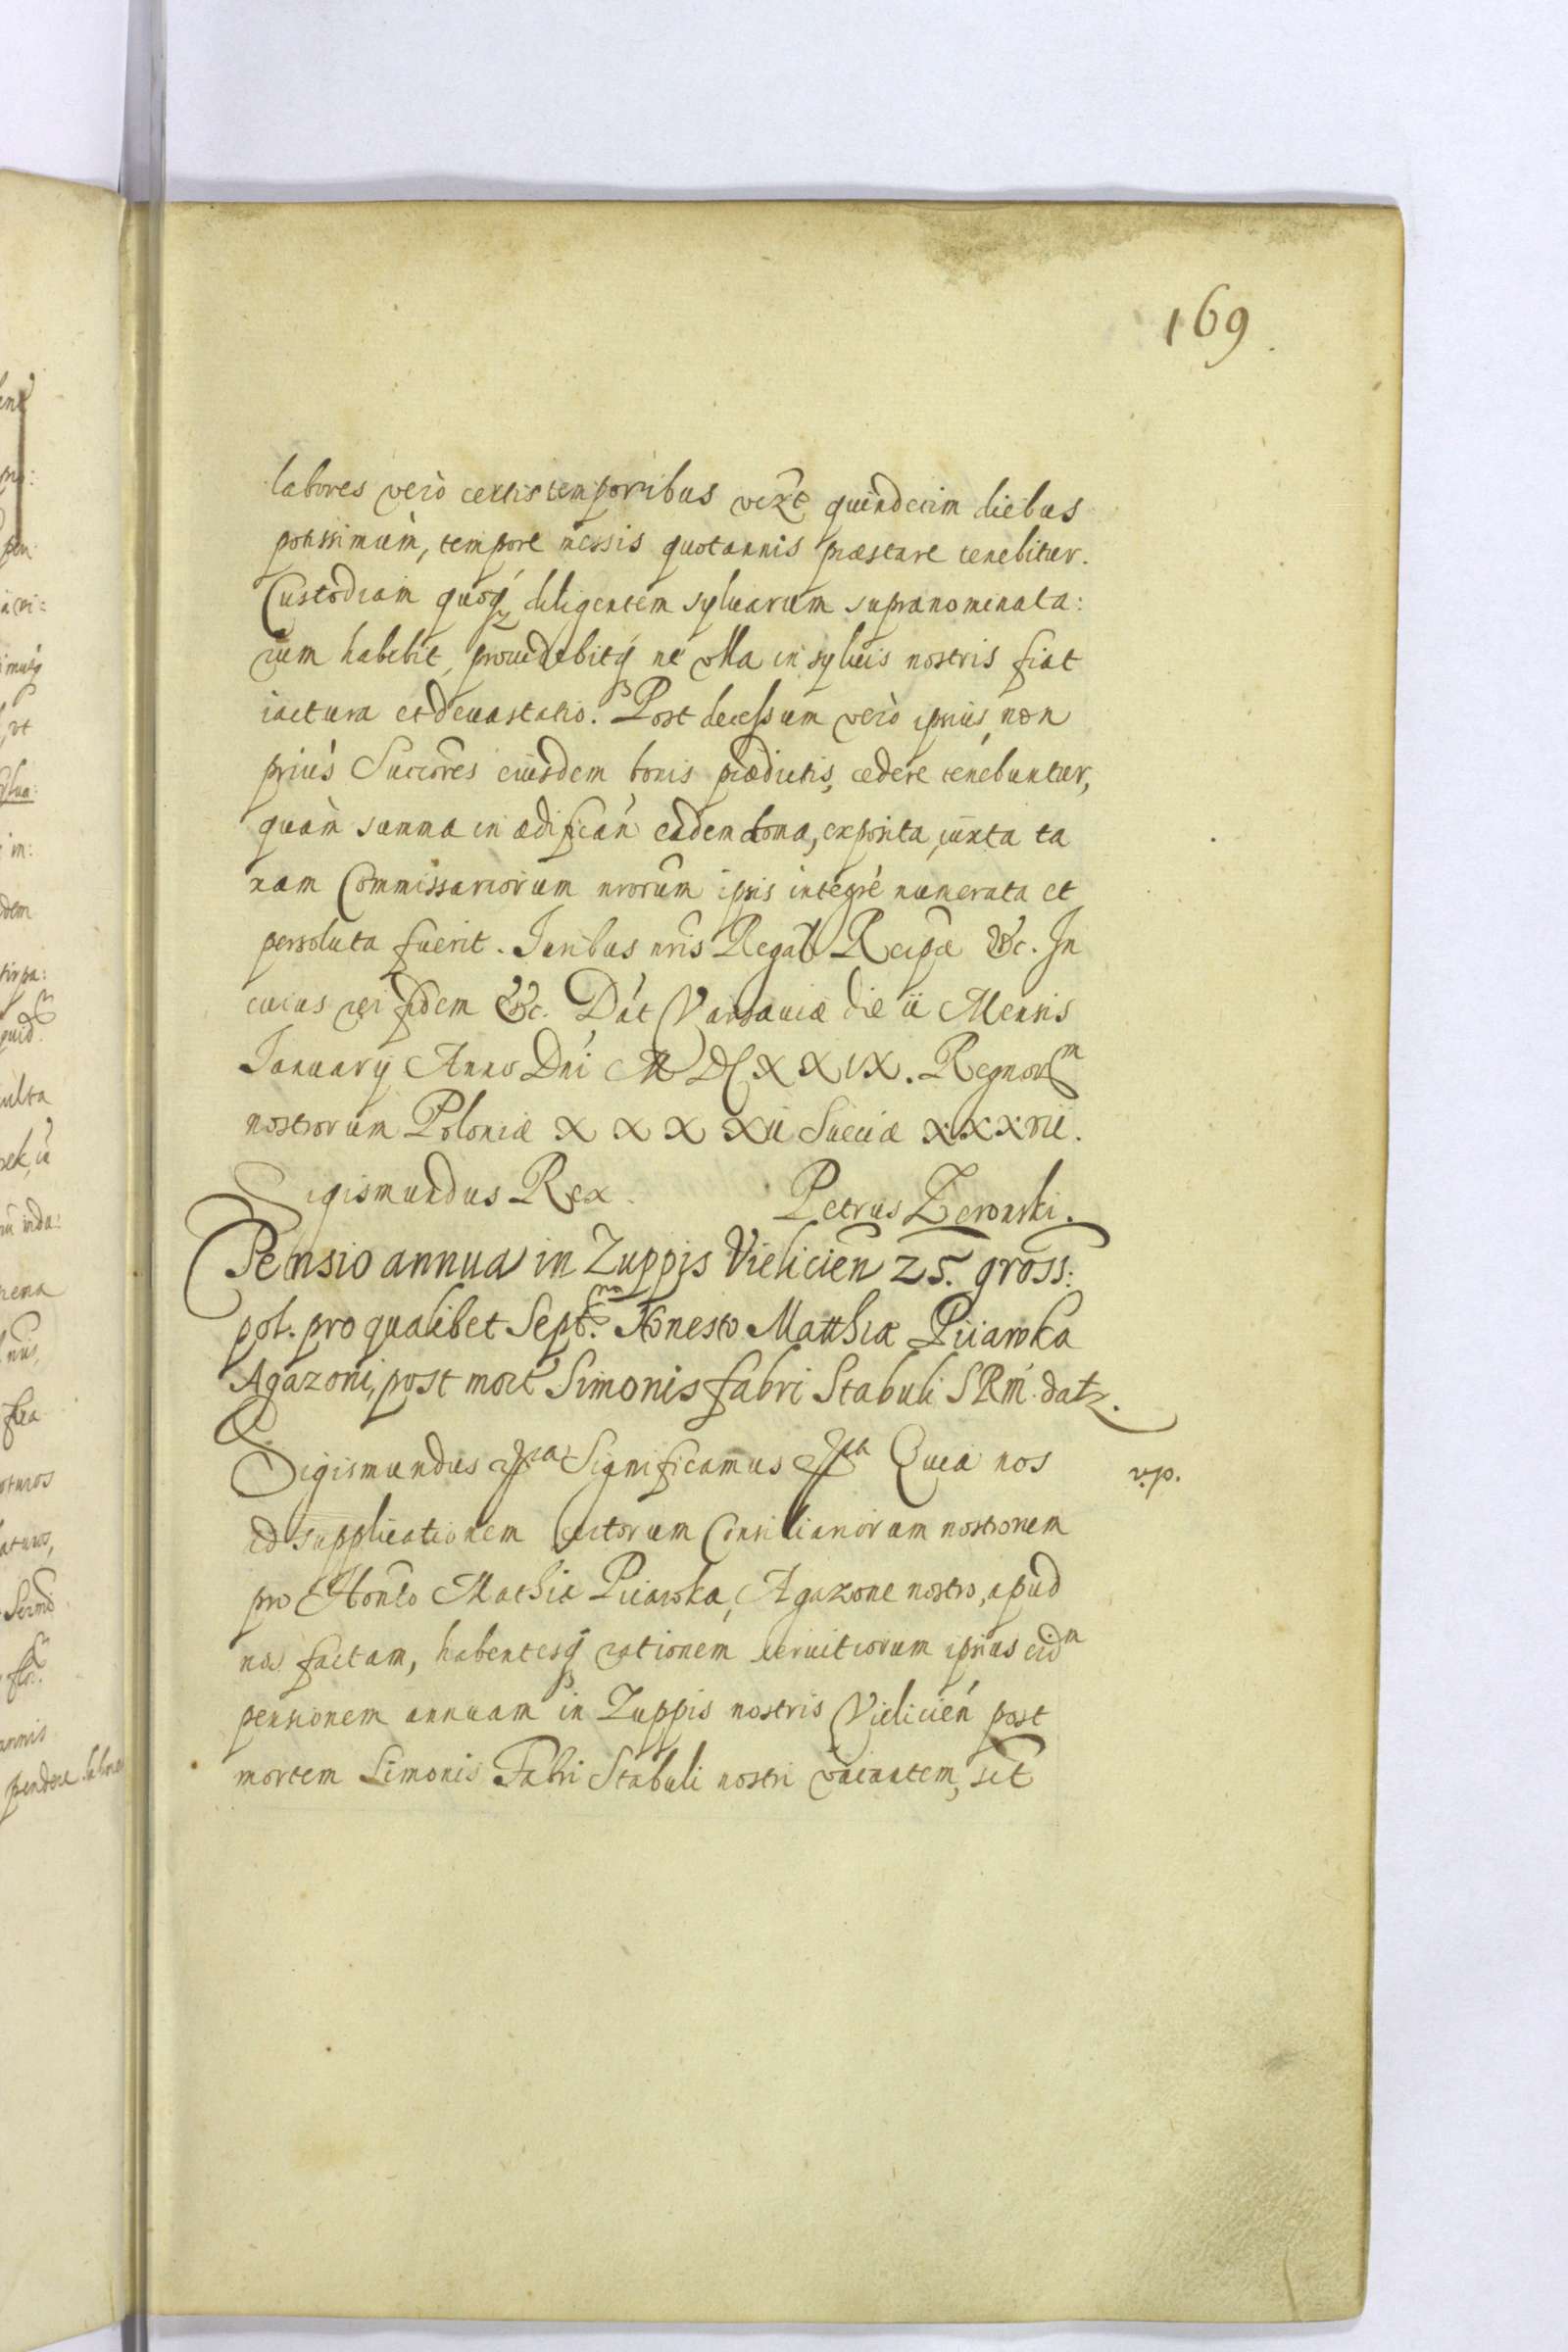 169
labores verò certis temporibus vezt quindecim diebus
potissimùm, tempore messis quotannis præstare tenebitur.
Custodiam quoq diligentem syluarum supranominata:
rum habebit, prouidebitq ne vlla in syluis nostris fiat
iactura et deuastatio. Post decessum verò ipsius, non
priùs Succores eiusdem bonis prædictis, cedere tenebuntur,
quàm summa in ædificań eadem bona, exposita, iuxta ta
xam Commissariorum nrorum ipsis integrè numerata et
persoluta fuerit. Iuribus nris Regal Reipæ &c. In
cuius rei fidem &c. Dat Varsauiæ die ii Mensis
January Anno Dni MDCXXIX. Regnorm
nostrorum Poloniæ XXXXII Sueciæ XXXVII.
Sigismundus Rex. Petrus Zeronski.
Pensio annua in Zuppis Vielicień 25. gross:
pol. pro qualibet Septna. Honesto Matthiæ Piiawka
Agazoni, post mort Simonis fabri Stabuli SRM. datz.
Sigismundus &ra Significamus &ra Quia nos v.p.
ad supplicationem certorum Consiliariorum nostrorum
pro Honto Mathia Piiawka, Agazone nostro, apud
nos factam, habentesq rationem seruitiorum ipsius eidm
pensionem annuam in Zuppis nostris Vielicień post
mortem Simonis Fabri Stabuli nostri vacantem, sct